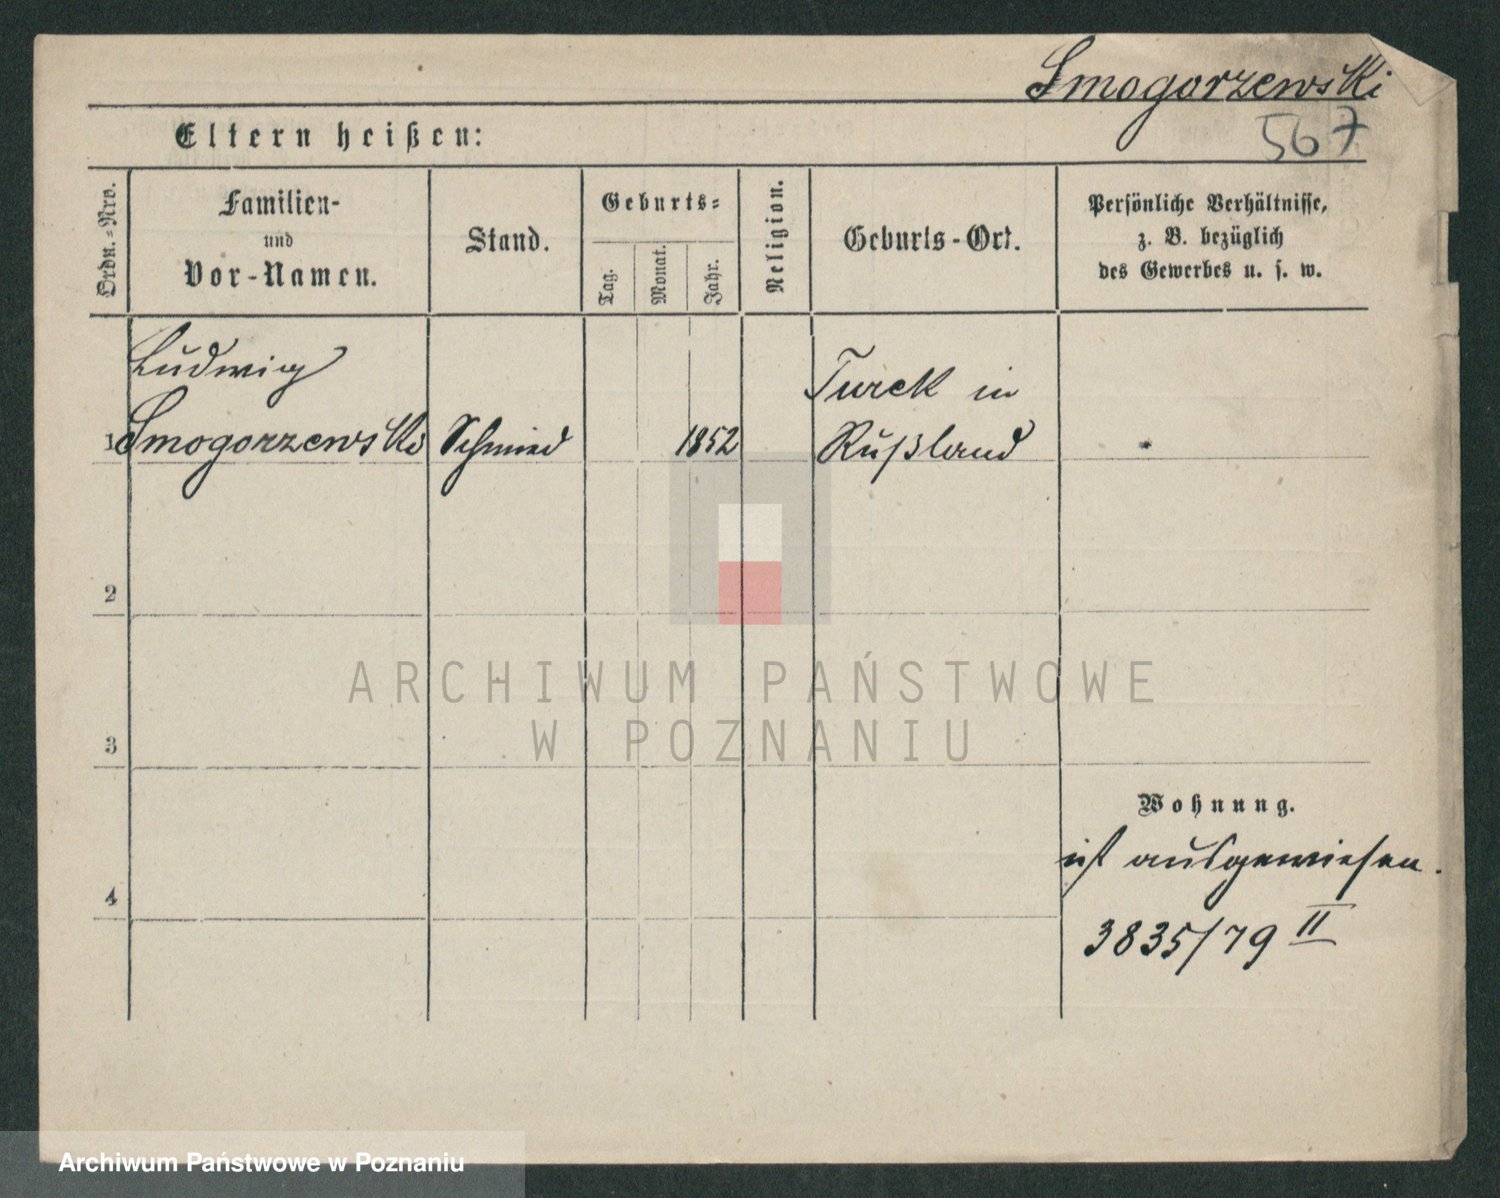 Smogorzewski
567
Eltern heißen:
Ordn.-Nro.
Familien-
und
Vor-Namen.
Stand.
Geburts-
Tag.
Monat.
Jahr.
Religion.
Geburts-Ort.
Persönliche Verhältnisse,
z. B. bezüglich
des Gewerbes u. s. w.
Ludwig
1 Smogorzewski Schmied 1852
Turek in
Rußland
2
3
4
Wohnung.
ist ausgewiesen.
3835/79 II
ARCHIWUM PAŃSTWOWE
W POZNANIU
Archiwum Państwowe w Poznaniu